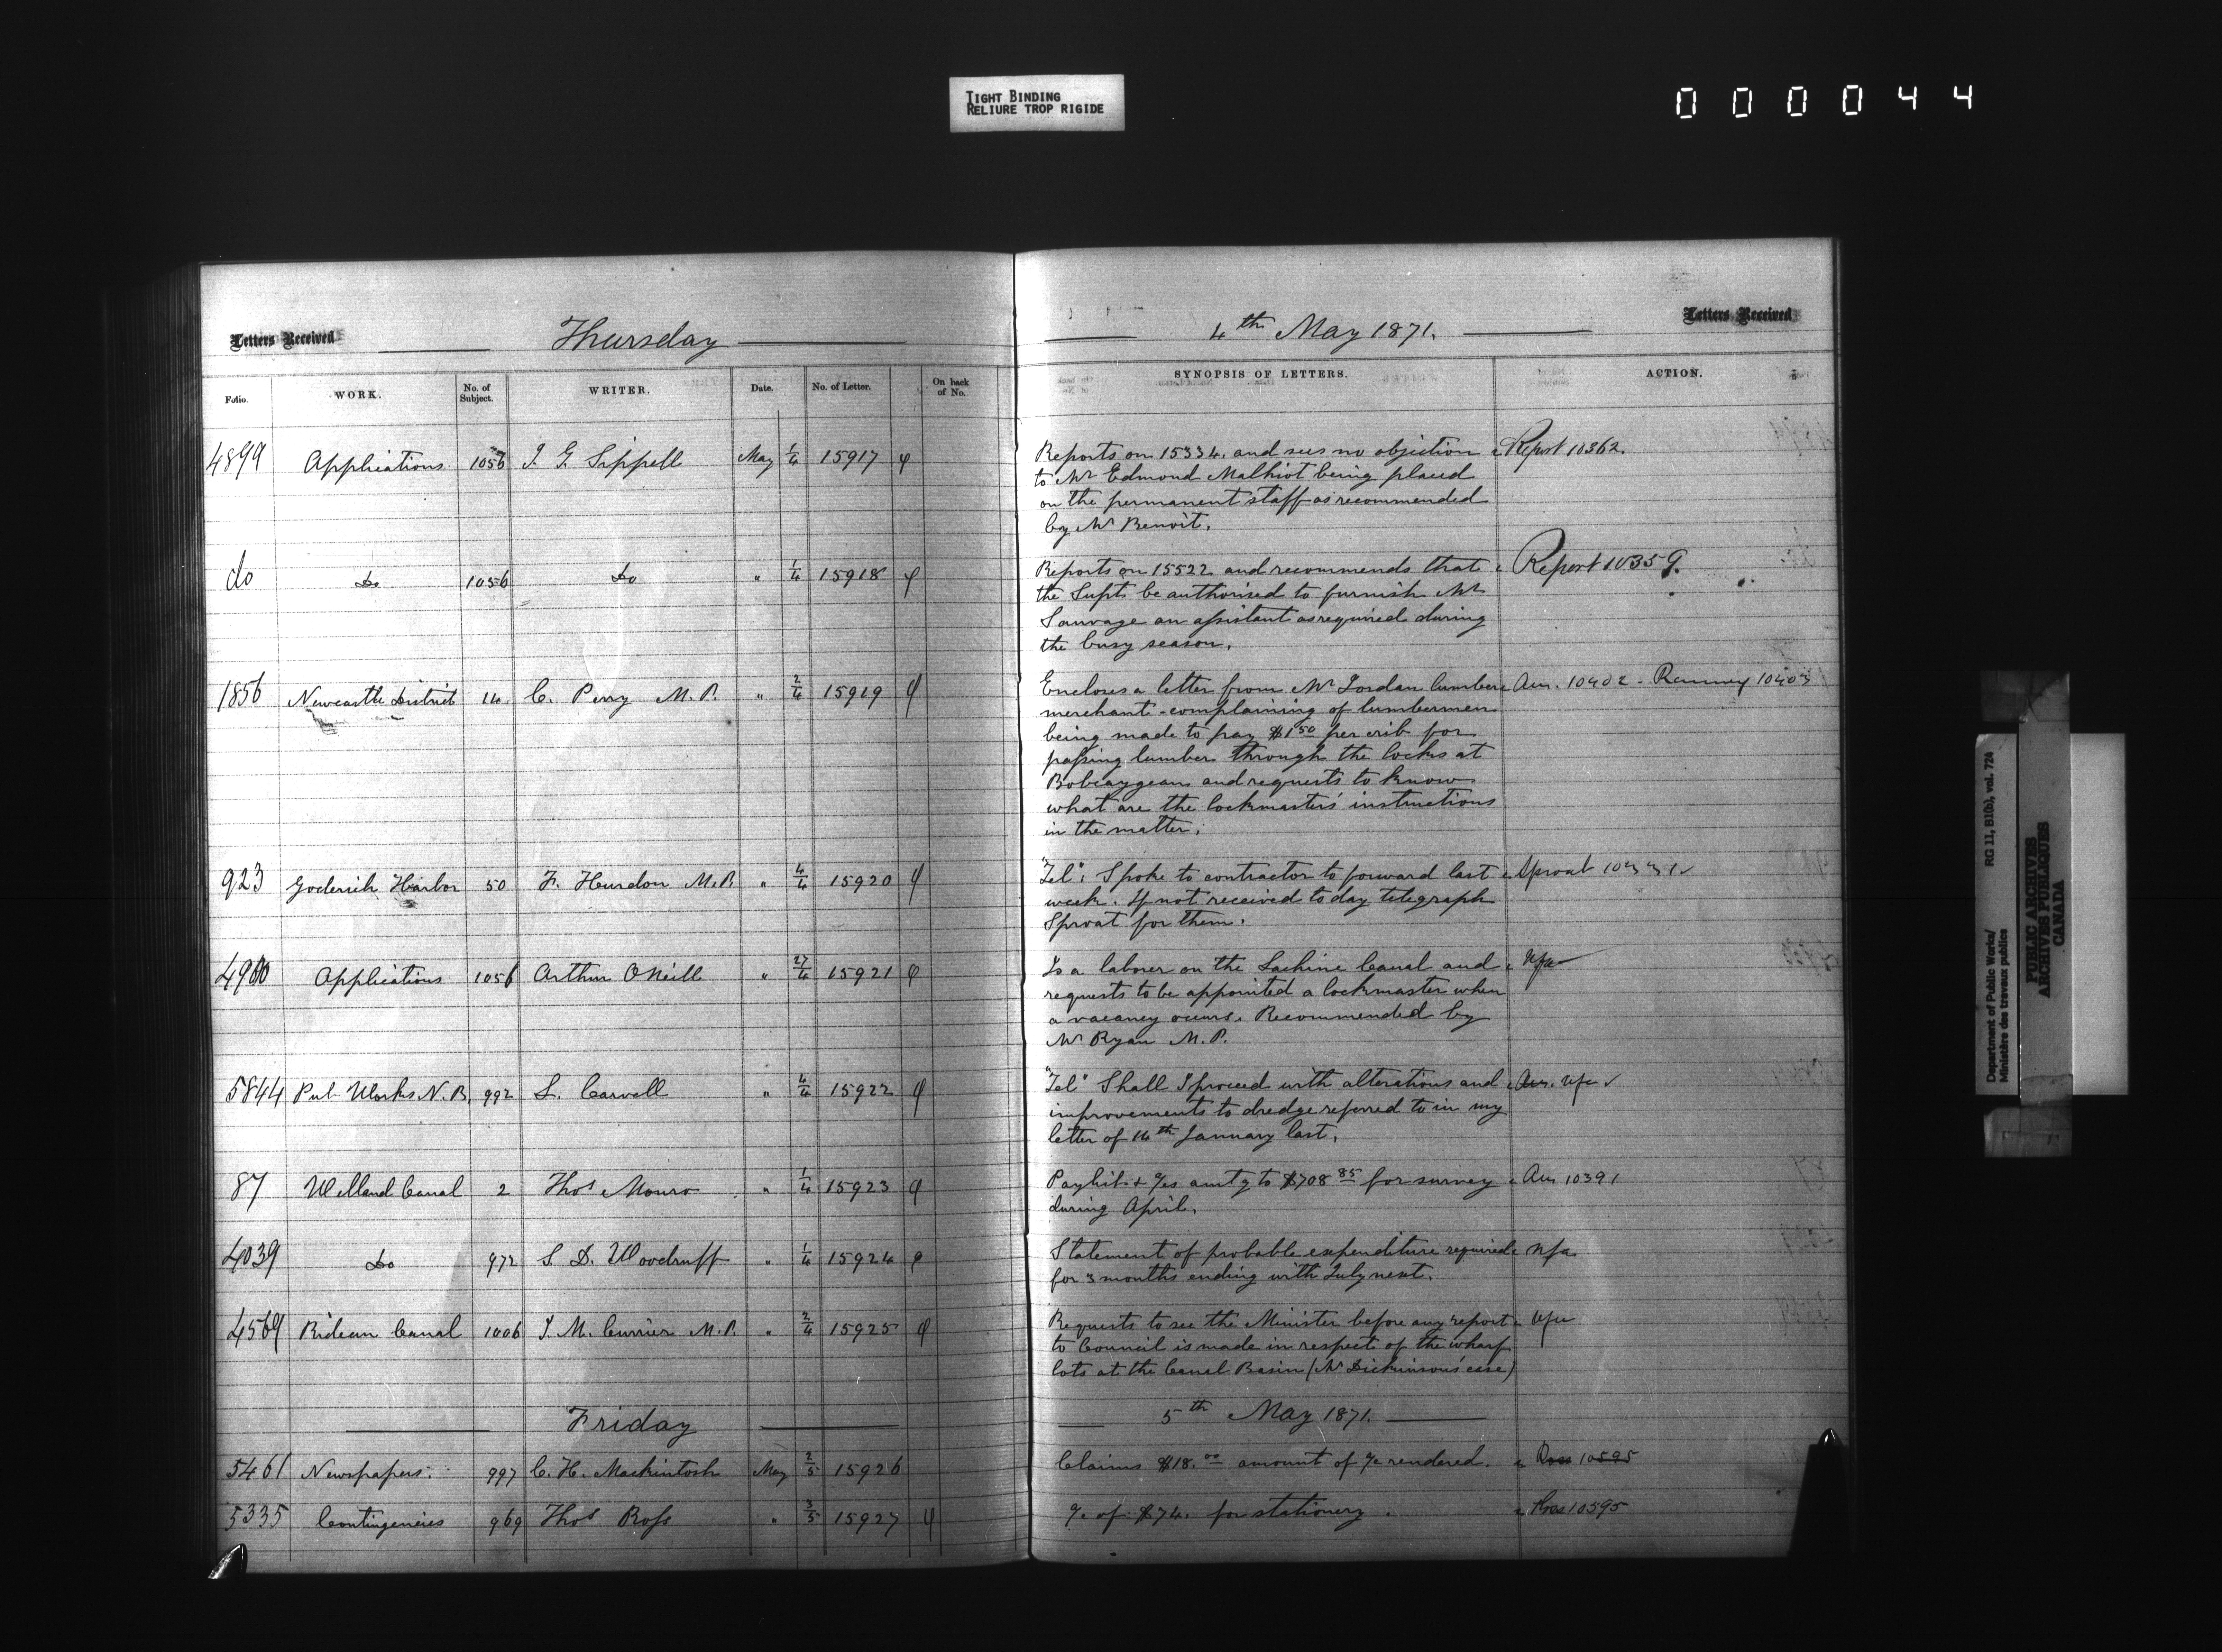 TIGHT BINDING
RELIURE TROP RIGIDE
000044
Letters Received
Thursday
4th May 1871.
Letters Received
Folio.
WORK.
No. of Subject.
WRITER.
Date.
No. of Letter.
On back of No.
SYNOPSIS OF LETTERS.
ACTION.
4899 Applications 1056 J. G. Sippell May 1/4 15917
Reports on 15334. and sees no objection Report 10362.
to Mr Edmond Malhiot being placed
on the permanent staff as recommended
by Mr Benoit.
do Do 1056 Do " 1/4 15918
Reports on 15522 and recommends that Report 10359.
the Supt. be authorised to furnish Mr
Sauvage an assistant as required during
the busy season.
1856 Newcastle District 14 C. Perry M.P. " 2/4 15919
Encloses a letter from Mr Jordan lumber Ans. 10402 - Ranney 10403
merchant - complaining of lumbermen
being made to pay $1.50 per crib for
passing lumber through the locks at
Bobcaygean and requests to know
what are the lockmasters' instructions
in the matter.
923 Goderich Harbor 50 F. Hurdon M.P. " 4/4 15920
"Tel": Spoke to contractor to forward last Sproat
week. If not received today telegraph
Sproat for them.
4900 Applications 1056 Arthur O'Neill " 27/4 15921
Is a laborer on the Lachine Canal and nfa
requests to be appointed a lockmaster when
a vacancy occurs. Recommended by
Mr Ryan M.P.
5844 Pub Works N.B. 992 L. Carvell " 4/4 15922
"Tel" Shall I proceed with alterations and Ans. nfa
improvements to dredge referred to in my
letter of 14th January last.
87 Welland Canal 2 Thos Monro " 1/4 15923
Paylist & a/cs amtg to $708.85 for survey Ans 10391
during April.
4039 Do 972 S. D. Woodruff " 1/4 15924
Statement of probable expenditure required nfa
for 3 months ending with July next.
4569 Rideau Canal 1006 J. M. Currier M.P. " 2/4 15925
Requests to see the Minister before any report nfa
to Council is made in respect of the wharf
lots at the Canal Basin (Mr Dickinson's case)
Friday
5th May 1871.
5461 Newspapers. 997 C. H. Mackintosh May 2/5 15926
Claims $18.00 amount of a/c rendered. 10595
5335 Contingencies 969 Thos Ross " 3/5 15927
a/c of $74. for stationery. 10595
Department of Public Works/
Ministère des travaux publics
RG 11, B1(b), vol. 724
PUBLIC ARCHIVES
ARCHIVES PUBLIQUES
CANADA